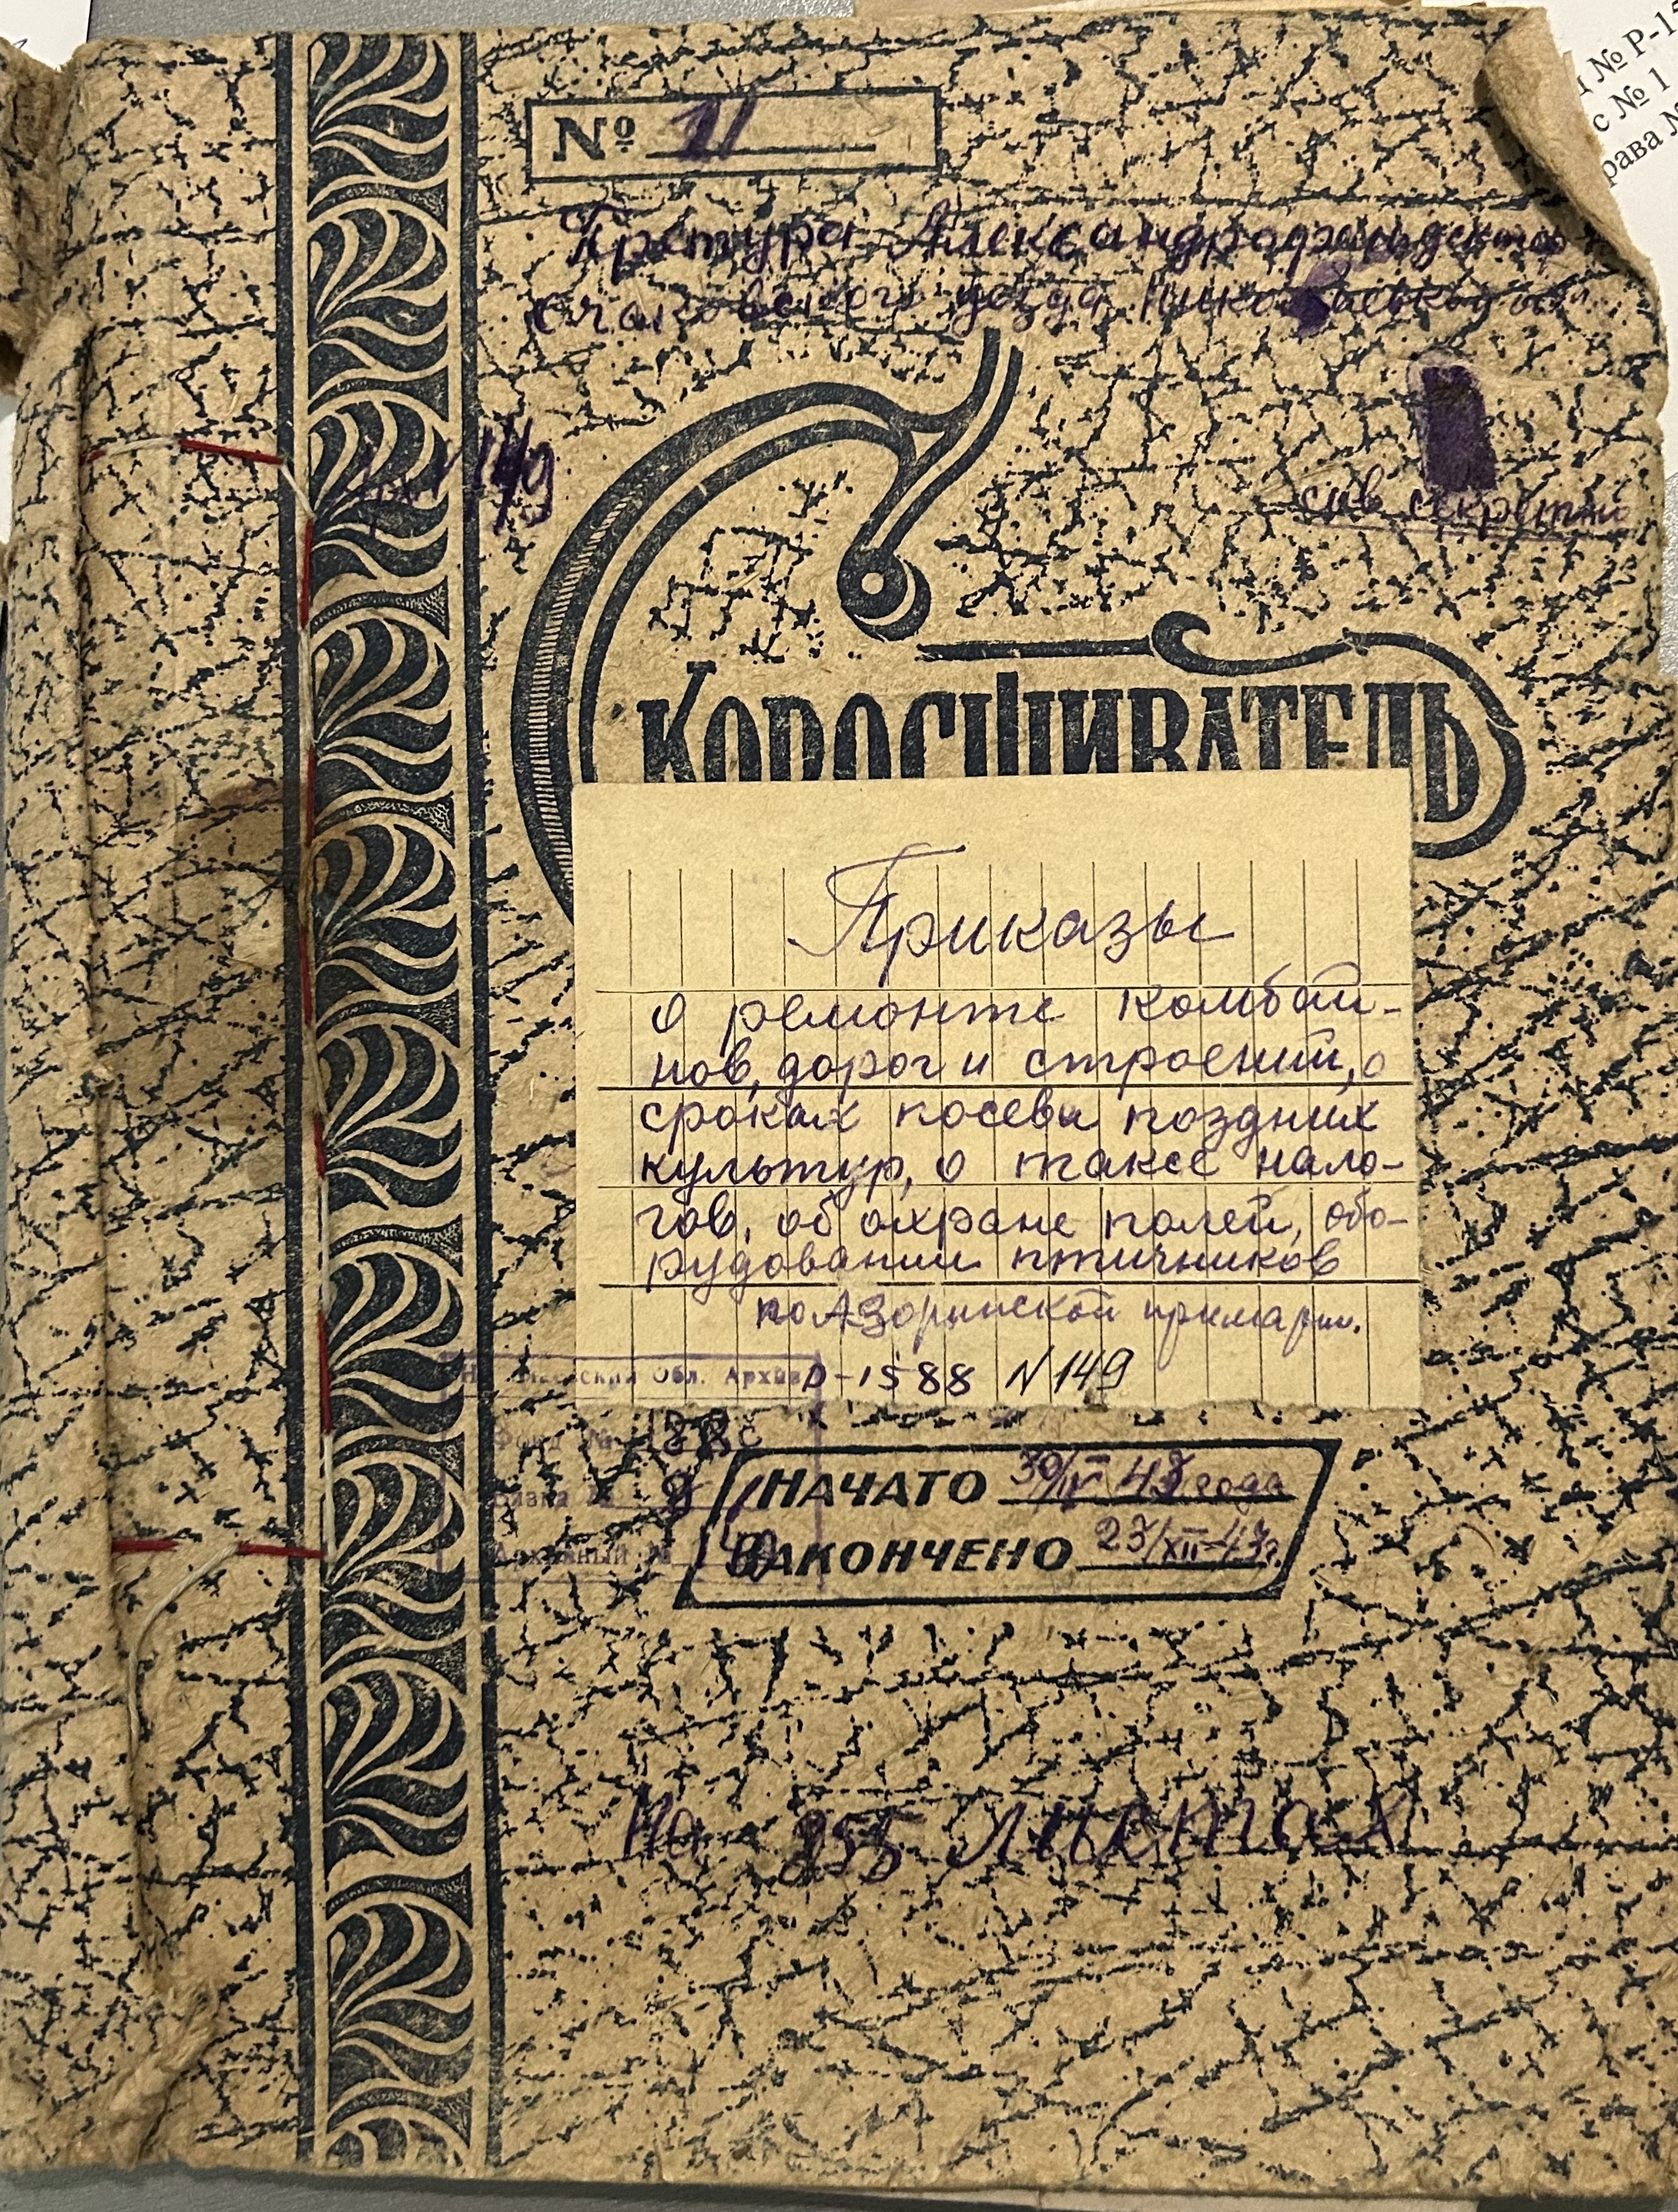 № 21
Претура Александродарьдентал
очаковского уезда Николаевской обл.
149
сов. секретно
СКОРОСШИВАТЕЛЬ
Приказы
о ремонте комбай-
нов, дорог и строений, о
сроках посева поздних
культур, о таксе нало-
гов, об охране полей, обо-
рудовании птичников
по Азоринской примарии.
Р-1588 N 149
Обл. Архив
Фонд №
Вязка №
Архивный №
НАЧАТО 30/IV 43 года
ЗАКОНЧЕНО 23/XII-43г.
На 255 листах
№ Р-15
с № 1
рава №